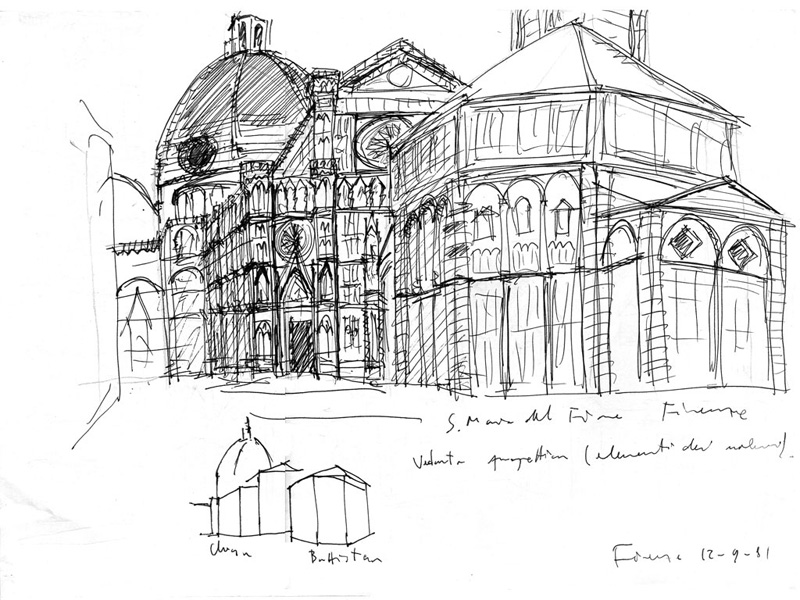 S. Maria del Fiore Firenze
Veduta prospettica (elementi dei volumi).
Chiesa
Battistero
Firenze 12-9-81